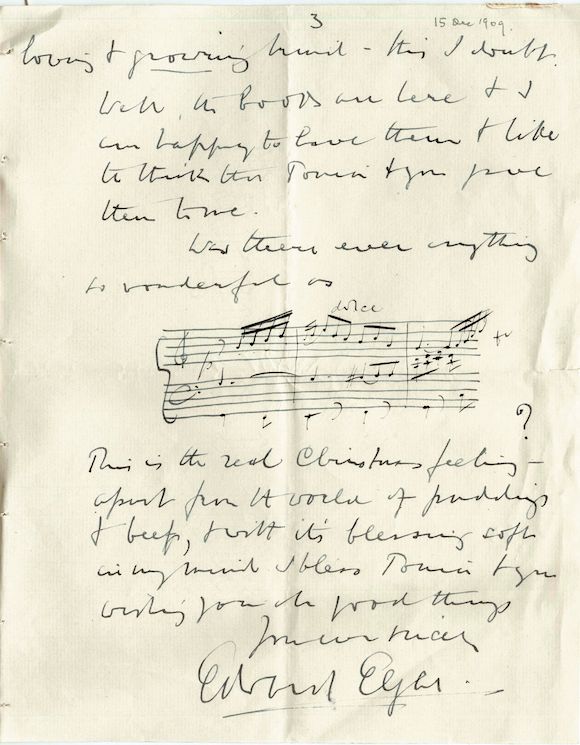 3
15 Dec 1909.
loving & growing mind – this I doubt.
Well, the books are here & I
am happy to have them & like
to think that & you gave
them to me.
Was there ever anything
so wonderful as
dolce
?
This is the real Christmas feeling –
apart from the world of puddings
& beef, & with it's blessing soft
in my mind I bless & you
wishing you all good things
Edward Elgar.